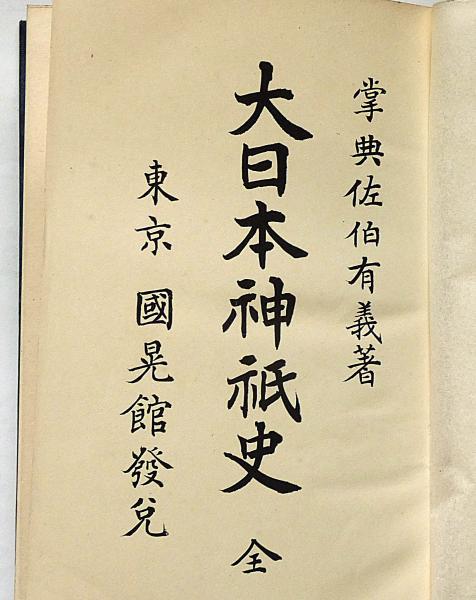 掌典佐伯有義著
大日本神祇史 全
東京 國晃館發兌